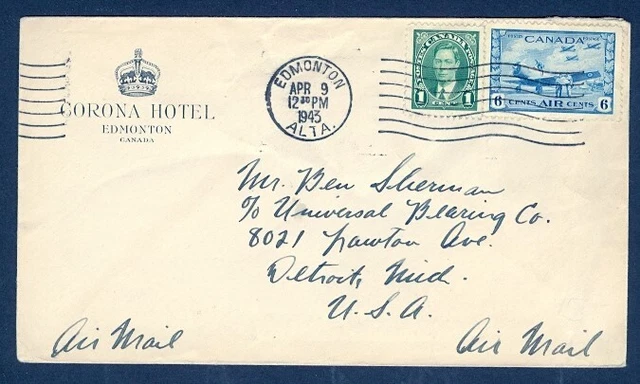 CORONA HOTEL
EDMONTON
CANADA
EDMONTON
APR 9
12 30 PM
1943
ALTA.
POSTES CANADA POSTAGE
1 CENT 1
CANADA
6 CENTS AIR CENTS 6
Mr. Ben Sherman
c/o Universal Bearing Co.
8021 Lawton Ave.
Detroit, Mich.
U.S.A.
Air Mail
Air Mail